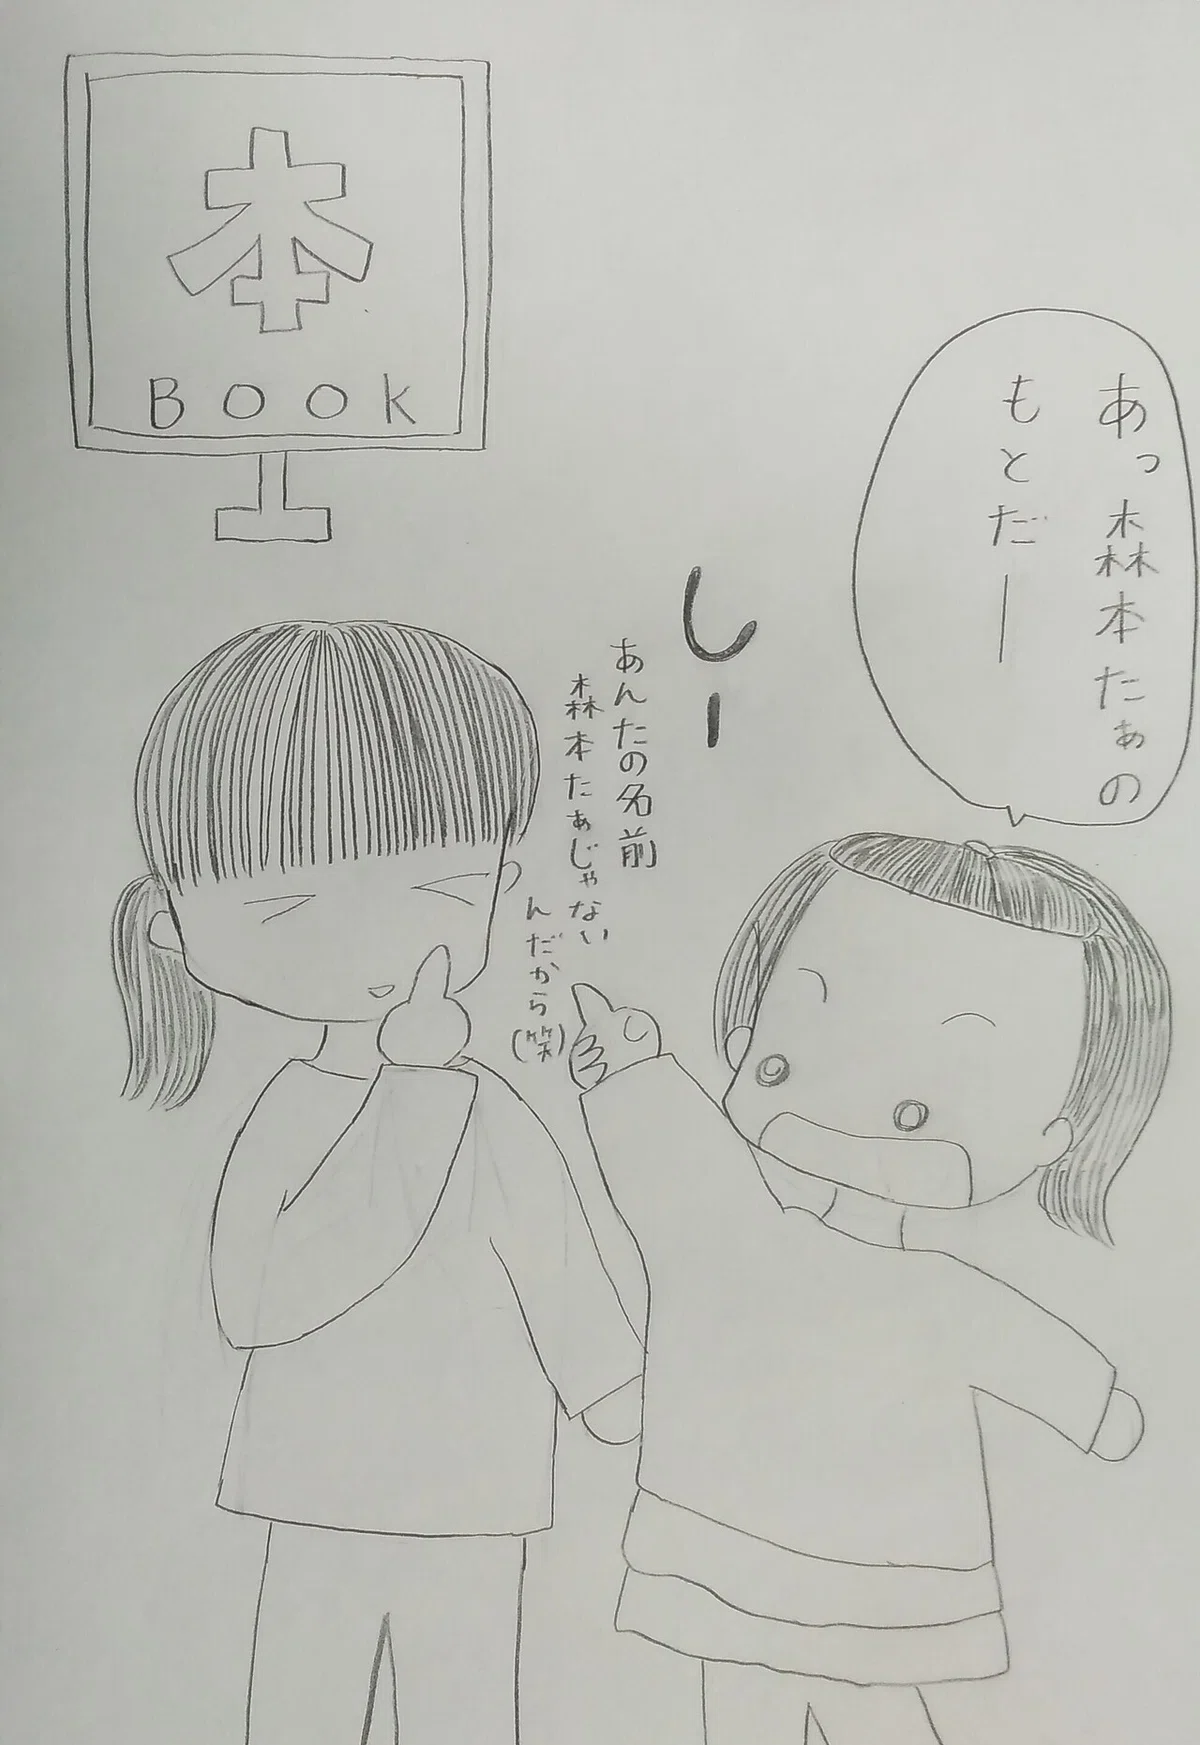 本
BOOK
あっ森本たぁの
もとだー
しー
あんたの名前
森本たぁじゃない
んだから(笑)